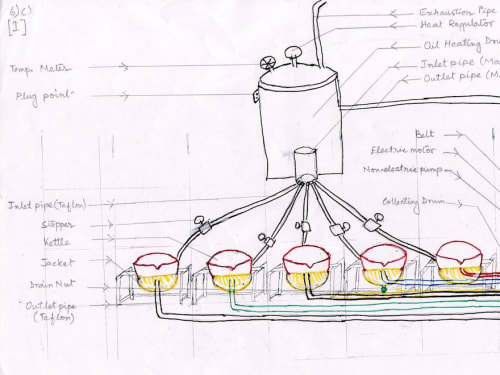 6)c)
[I]
Exhaustion Pipe
Heat Regulator
Oil Heating Dru
Inlet pipe (Ma
Outlet pipe (M
Temp. Meter
Plug point
Belt
Electric motor
Non-electric pump
Collecting Drum
Inlet pipe (Taflon)
Stopper
Kettle
Jacket
Drain Nut
Outlet pipe
(Taflon)